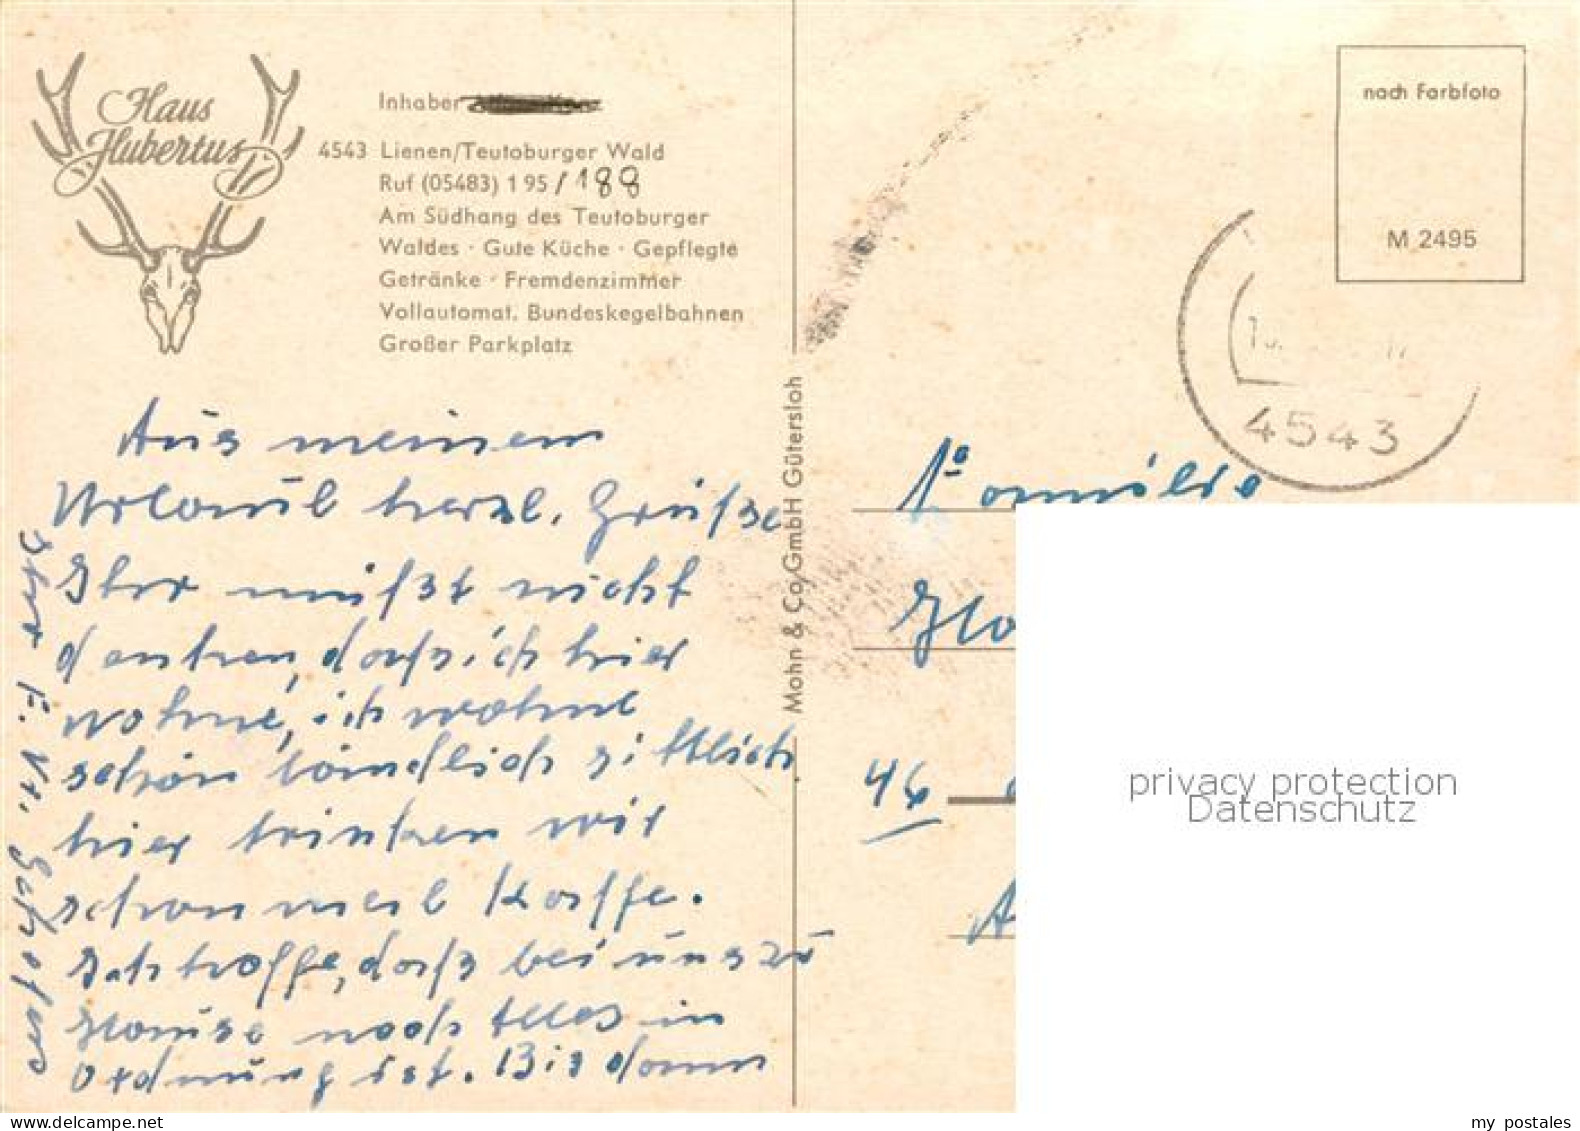 Haus
Hubertus
Inhaber
4543 Lienen/Teutoburger Wald
Ruf (05483) 1 95 / 188
Am Südhang des Teutoburger
Waldes · Gute Küche · Gepflegte
Getränke · Fremdenzimmer
Vollautomat. Bundeskegelbahnen
Großer Parkplatz
Aus meinem
Urlaub herzl. Grüße
Ihr müßt nicht
denken, daß ich hier
wohne, ich wohne
schön ländlich sittlich.
hier trinken wir
schon mal Kaffe.
Ich hoffe, daß bei uns zu
Hause noch Alles in
Ordnung ist. Bis dann
Mohn & Co GmbH Gütersloh
nach Farbfoto
M 2495
4543
Familie
46
privacy protection
Datenschutz
my postales